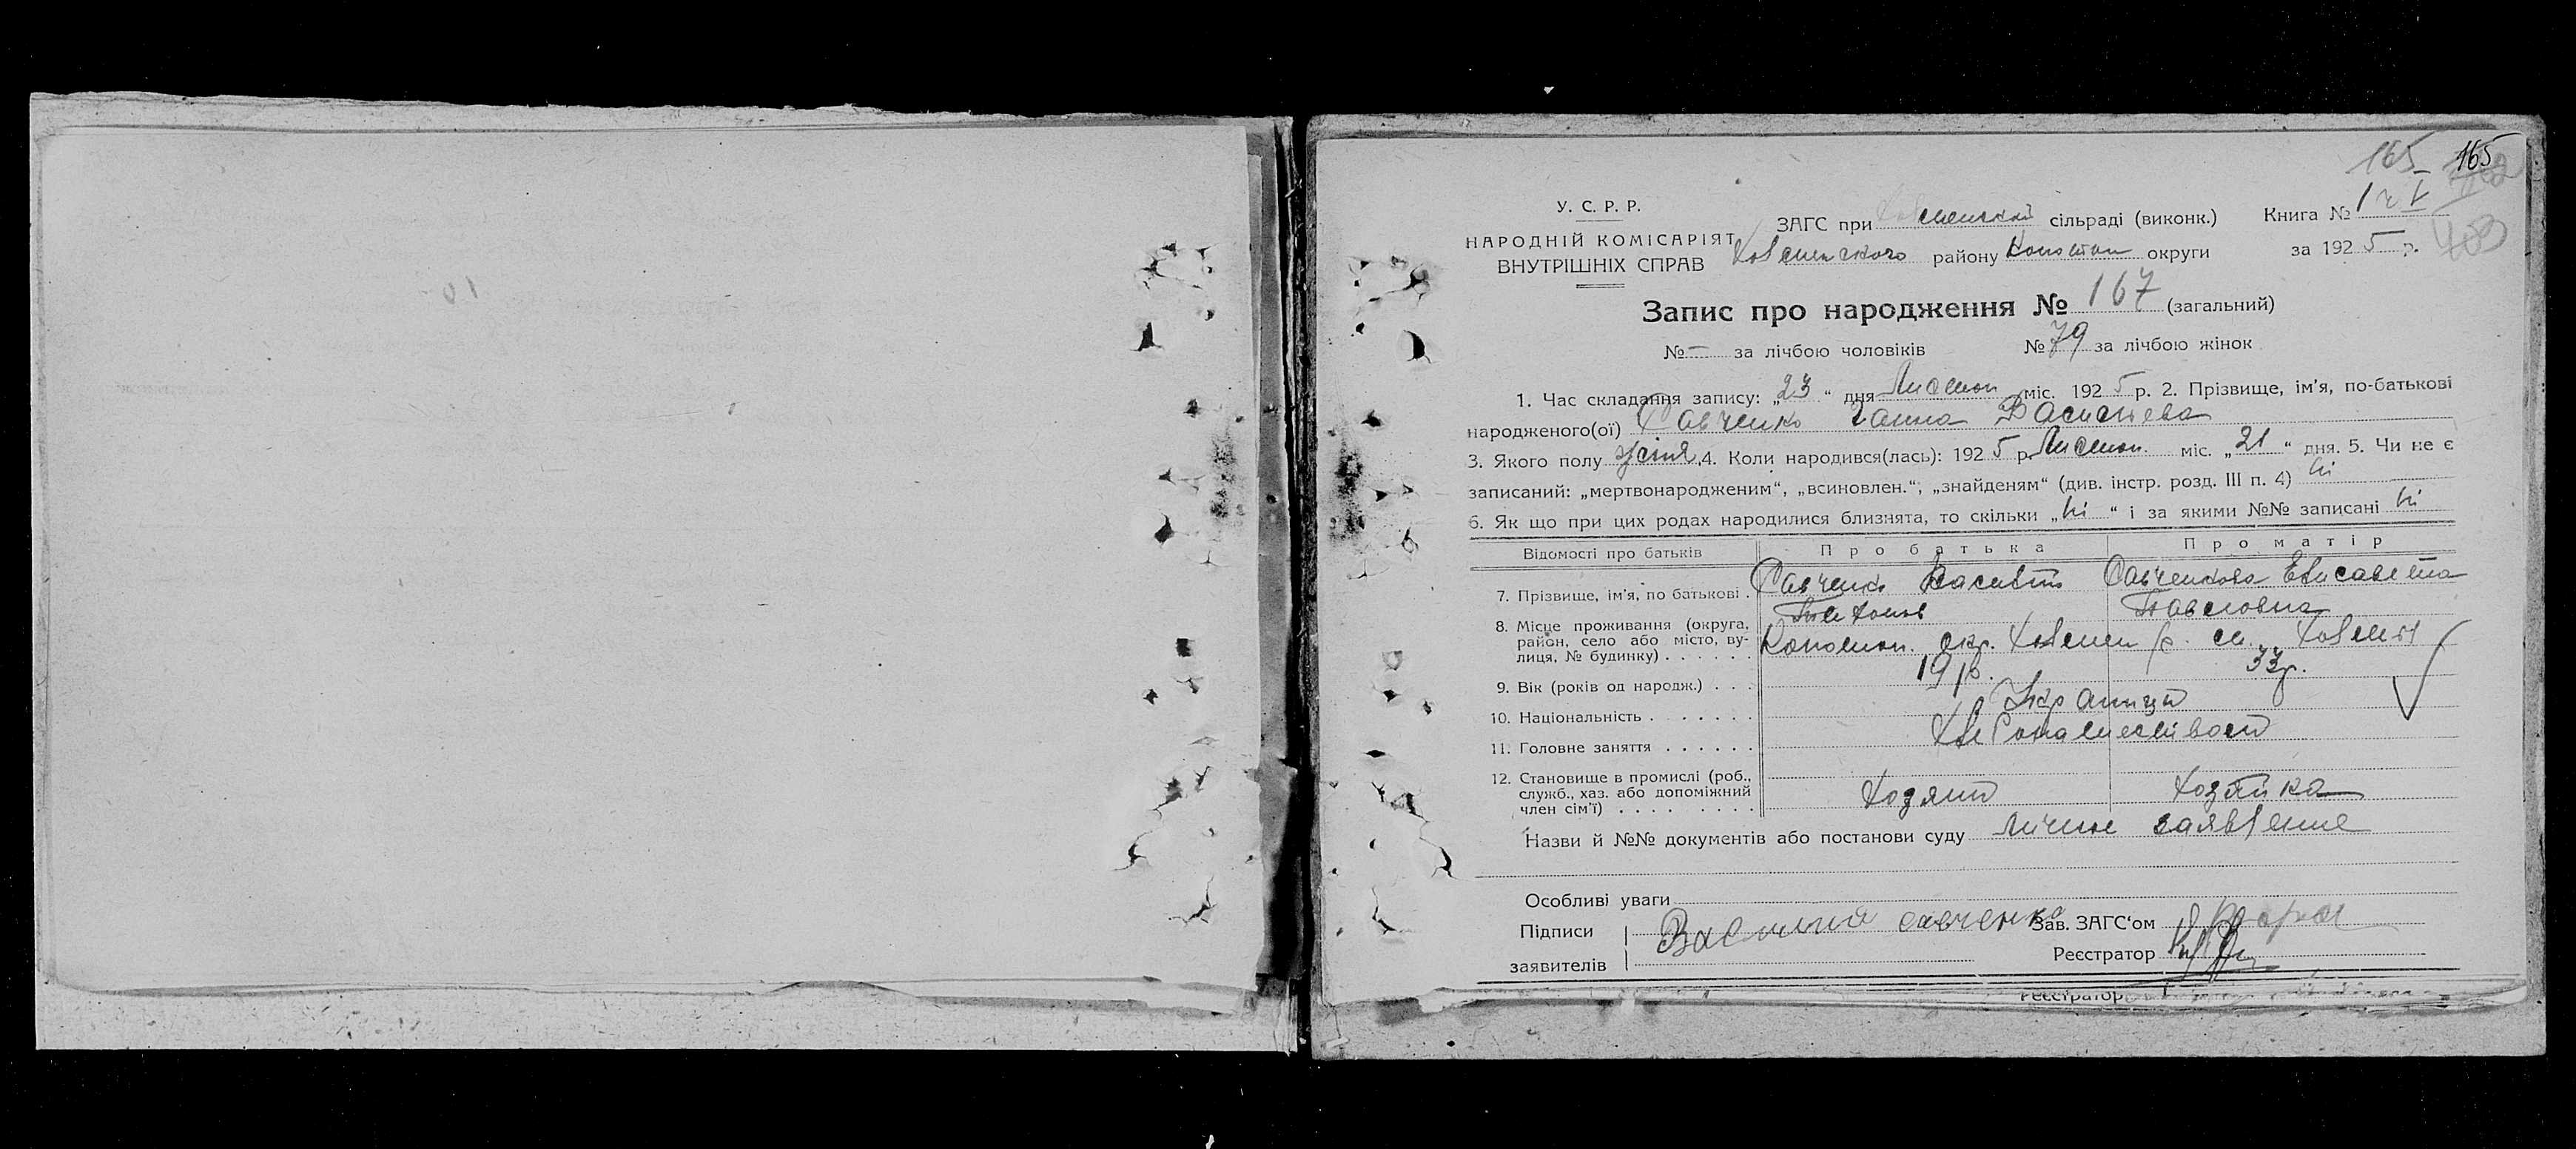 165 165
У. С. Р. Р.
НАРОДНІЙ КОМІСАРІЯТ
ВНУТРІШНІХ СПРАВ
ЗАГС при сільраді (виконк.) Книга № 1
району Конотоп округи за 1925 р.
Запис про народження № 167 (загальний)
№ — за лічбою чоловіків № 79 за лічбою жінок
1. Час складання запису: „23“ дня Листоп міс. 1925 р. 2. Прізвище, ім'я, по-батькові
народженого(ої) Савченко Ганна Васильева
3. Якого полу жіня. 4. Коли народився(лась): 1925 р. Листоп. міс. „21“ дня. 5. Чи не є
записаний: „мертвонародженим“, „всиновлен.“, „знайденям“ (див. інстр. розд. III п. 4) Ні
6. Як що при цих родах народилися близнята, то скільки „Ні“ і за якими №№ записані Ні
Відомості про батьків Про батька Про матір
7. Прізвище, ім'я, по батькові . Савченко Василь Савченкова Елисавета
Павловна
8. Місце проживання (округа, район, село або місто, вулиця, № будинку) . . . . . . Конотоп. окр.
9. Вік (років од народж.) . . . 33р.
10. Національність . . . . . . . Українці
11. Головне заняття . . . . . .
12. Становище в промислі (роб., служб., хаз. або допоміжний член сім'ї) . . . . . . . . . Хозяин Хозяйка
Назви й №№ документів або постанови суду личне заявление
Особливі уваги
Підписи Василий савченко Зав. ЗАГС'ом
заявителів Реєстратор
Реєстратор